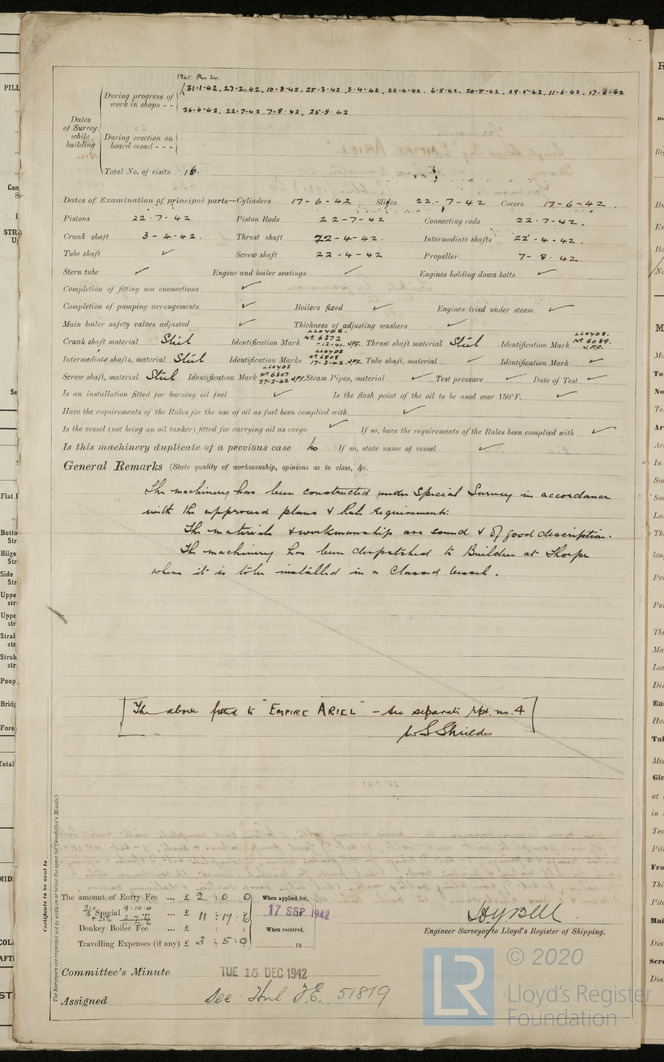 1941 Nov 24.
During progress of work in shops - - 31-1-42, 27-2-42, 10-3-42, 25-3-42, 3-4-42, 22-4-42, 6-5-42, 20-5-42, 29-5-42, 11-6-42, 17-6-42
26-6-42, 22-7-42, 7-8-42, 25-8-42
Dates of Survey while building
During erection on board vessel - - -
Total No. of visits 16.
Dates of Examination of principal parts—Cylinders 17-6-42 Slides 22-7-42 Covers 17-6-42.
Pistons 22-7-42 Piston Rods 22-7-42 Connecting rods 22-7-42.
Crank shaft 3-4-42. Thrust shaft 22-4-42. Intermediate shafts 22-4-42.
Tube shaft ✓ Screw shaft 22-4-42 Propeller 7-8-42
Stern tube ✓ Engine and boiler seatings ✓ Engines holding down bolts ✓
Completion of fitting sea connections ✓
Completion of pumping arrangements ✓ Boilers fixed ✓ Engines tried under steam ✓
Main boiler safety valves adjusted ✓ Thickness of adjusting washers ✓
Crank shaft material Steel Identification Mark LLOYDS. Thrust shaft material Steel Identification Mark LLOYDS. Nº 6089.
Intermediate shafts, material Steel Identification Marks LLOYDS 17-3-42 Tube shaft, material ✓ Identification Mark ✓
Screw shaft, material Steel Identification Mark LLOYDS Nº 6807 27-2-42 Steam Pipes, material ✓ Test pressure ✓ Date of Test ✓
Is an installation fitted for burning oil fuel ✓ Is the flash point of the oil to be used over 150°F. ✓
Have the requirements of the Rules for the use of oil as fuel been complied with ✓
Is the vessel (not being an oil tanker) fitted for carrying oil as cargo ✓ If so, have the requirements of the Rules been complied with ✓
Is this machinery duplicate of a previous case No If so, state name of vessel ✓
General Remarks (State quality of workmanship, opinions as to class, &c.
The machinery has been constructed under Special Survey in accordance
with the approved plans & Rule requirements.
The materials & workmanship are sound & of good description.
The machinery has been despatched to Builders at Thorpe
where it is to be installed in a Classed vessel.
[The above fitted to "EMPIRE ARIEL" - See separate rpt. no. 4]
W S Shields
Certificate to be sent to
The amount of Entry Fee ... £ 2 : 0 : 0
Special ... £ 11 : 17 : 6
Donkey Boiler Fee ... £
Travelling Expenses (if any) £ 3 : 5 : 0
When applied for,
17 SEP 1942
When received,
19
Engineer Surveyor to Lloyd's Register of Shipping.
Committee's Minute TUE 15 DEC 1942
Assigned See Hull J.E. 51819
LR © 2020
Lloyd's Register
Foundation